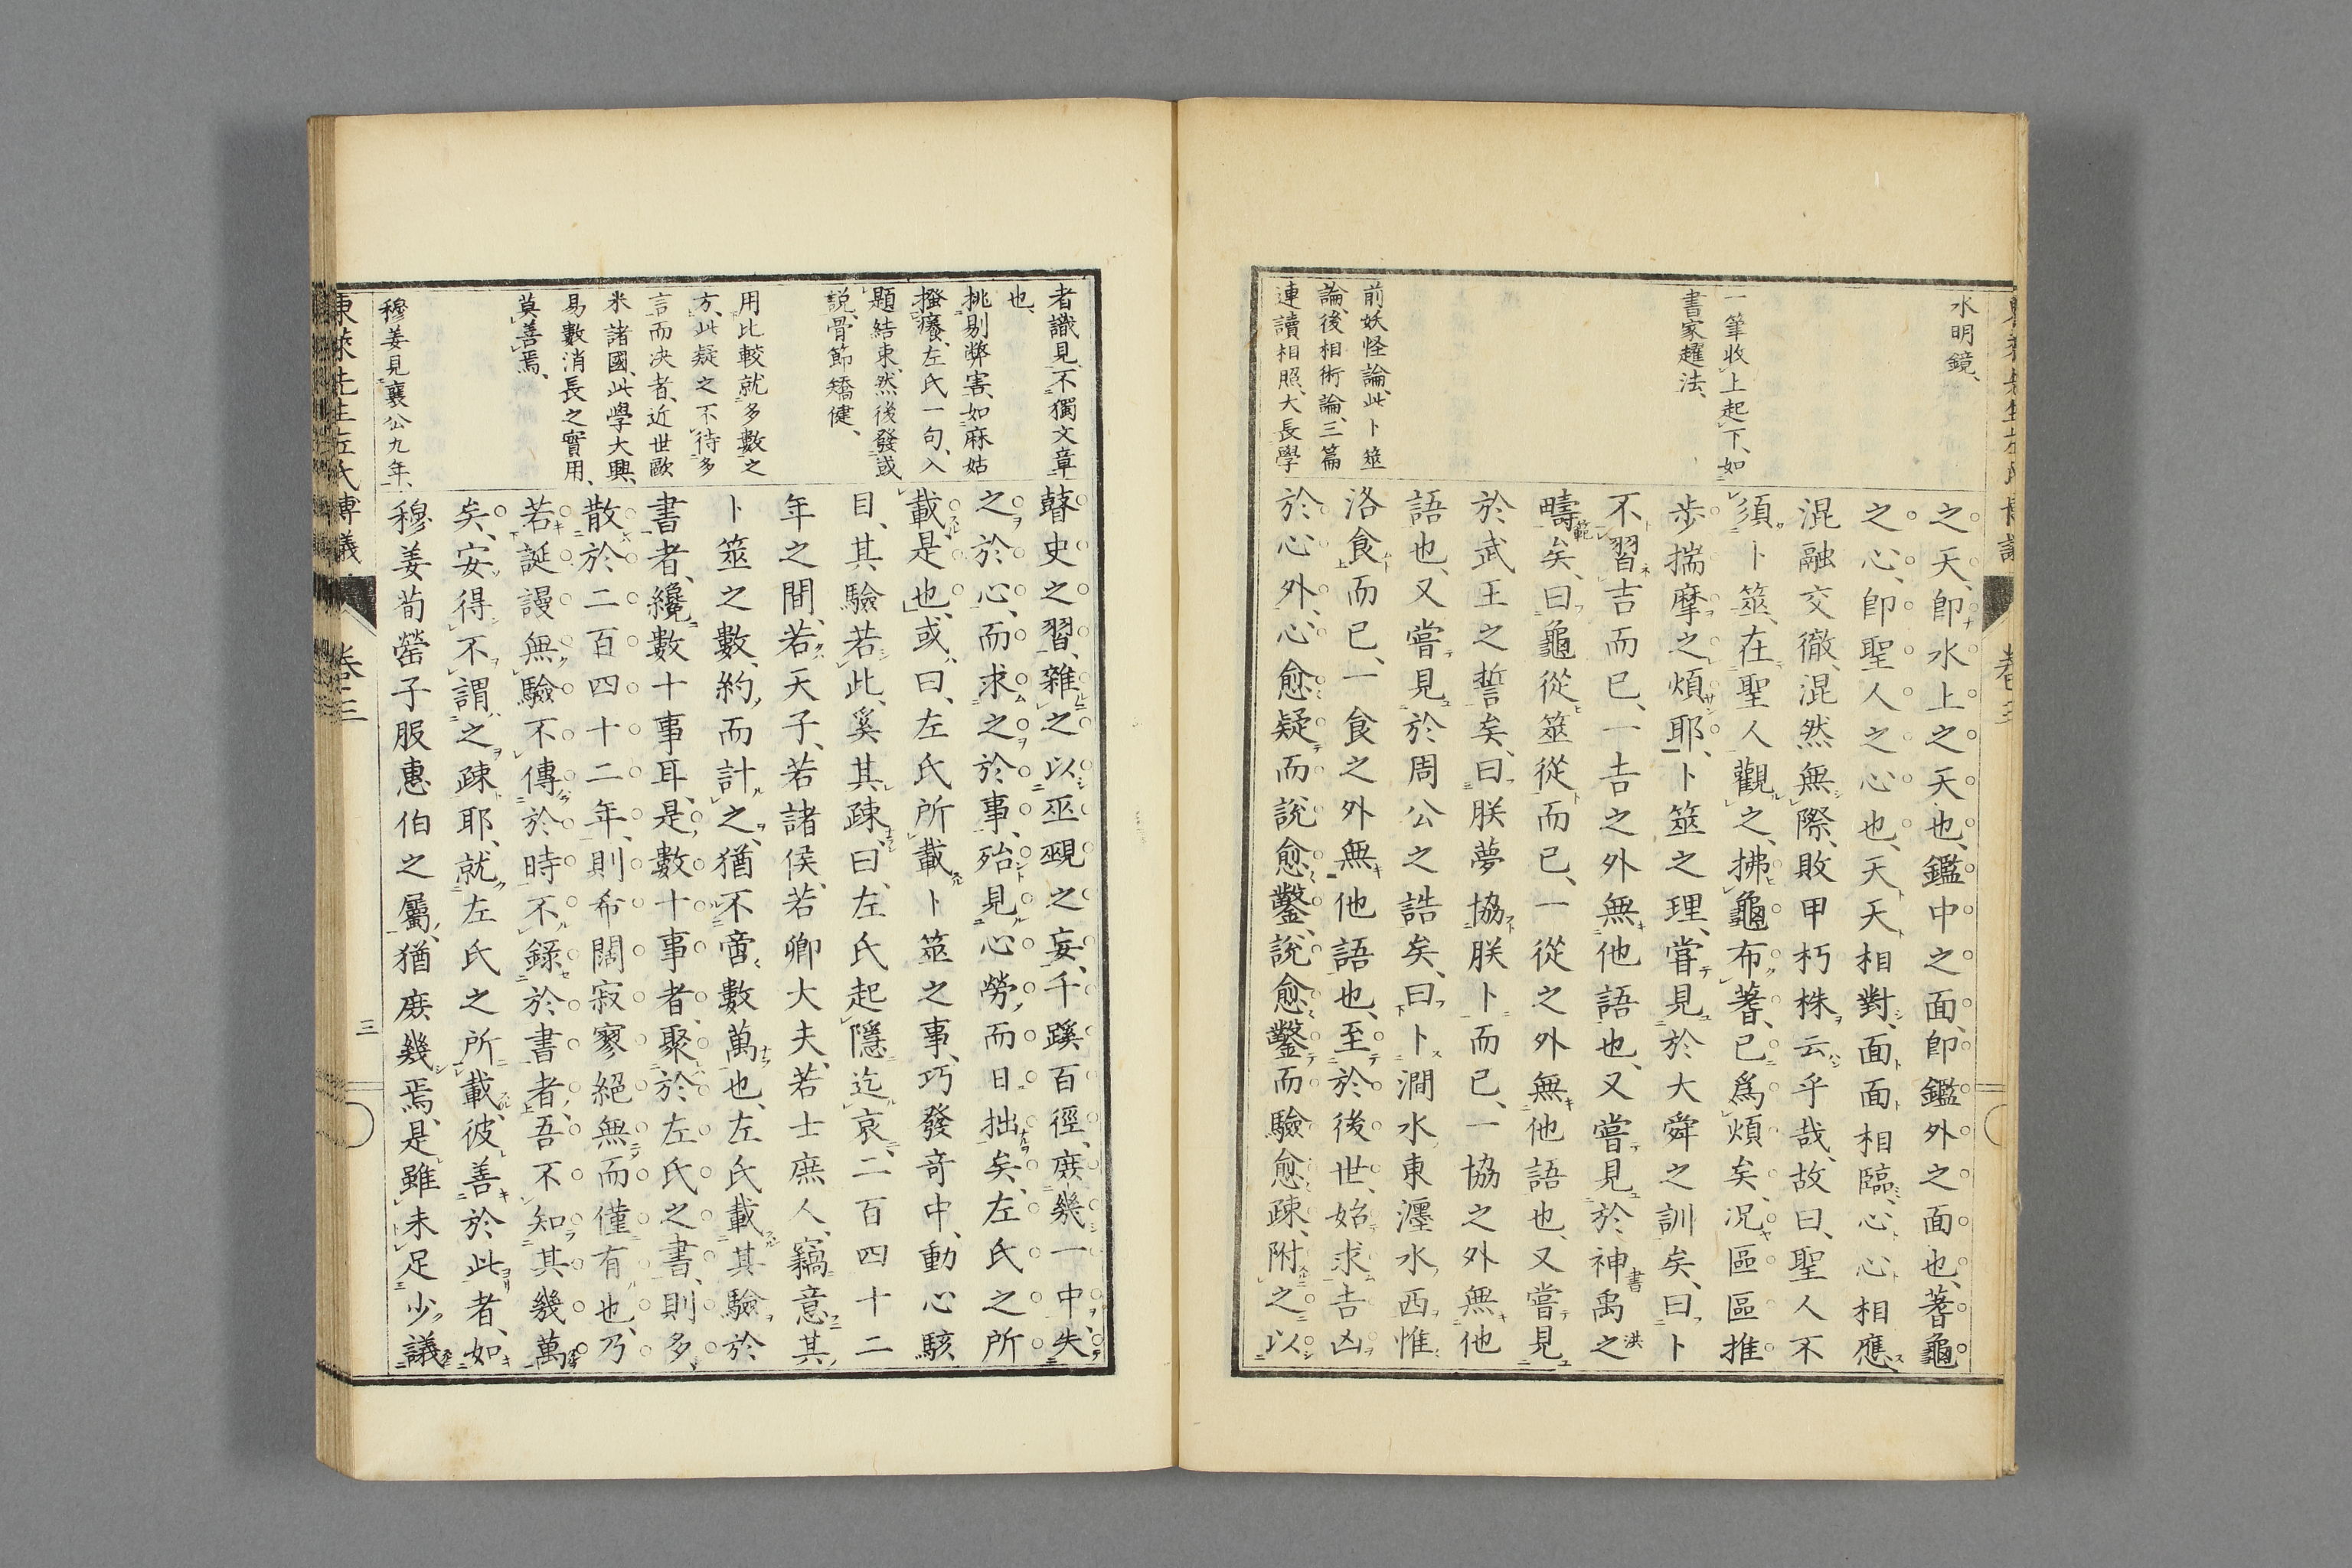 水明鏡、
一筆收上起下、如
書家趯法、
前妖怪論、此卜筮
論、後相術論、三篇
連讀相照、大長學
之天、卽水上之天也、鑑中之面、卽鑑外之面也、蓍龜
之心、卽聖人之心也、天天相對、面面相臨、心心相應、
混融交徹、混然無際、敗甲朽株云乎哉、故曰、聖人不
須卜筮、在聖人觀之、拂龜布蓍、已爲煩矣、况區區推
步揣摩之煩耶、卜筮之理、嘗見於大舜之訓矣、曰、卜
不習吉而已、一吉之外無他語也、又嘗見於神禹之
疇矣、曰、龜從筮從而已、一從之外無他語也、又嘗見
於武王之誓矣、曰、朕夢協朕卜而已、一協之外無他
語也、又嘗見於周公之誥矣、曰、卜澗水東瀍水西惟
洛食而已、一食之外無他語也、至於後世、始求吉凶
於心外、心愈疑而說愈鑿、說愈鑿而驗愈疎、附之以
者識見、不獨文章
也、
挑剔弊害、如麻姑
搔癢、左氏一句、入
題結束、然後發或
說、骨節矯健、
用比較就多數之
方、此疑之不待多
言而决者、近世歐
米諸國、此學大興、
易數消長之實用、
莫善焉、
穆姜見襄公九年、
瞽史之習、雜之以巫覡之妄、千蹊百徑、庶幾一中、失
之於心、而求之於事、殆見心勞而日拙矣、左氏之所
載是也、或曰、左氏所載卜筮之事、巧發奇中、動心駭
目、其驗若此、奚其疎、曰、左氏起隱迄哀、二百四十二
年之間、若天子、若諸侯、若卿大夫、若士庶人、竊意其
卜筮之數、約而計之、猶不啻數萬也、左氏載其驗於
書者、纔數十事耳、是數十事者、聚於左氏之書、則多、
散於二百四十二年、則希闊寂寥絕無而僅有也、乃
若誕謾無驗、不傳於時、不錄於書者、吾不知其幾萬
矣、安得不謂之疎耶、就左氏之所載、彼善於此者、如
穆姜荀罃子服惠伯之屬、猶庶幾焉、是雖未足少議
東萊先生左氏博議
卷三
三